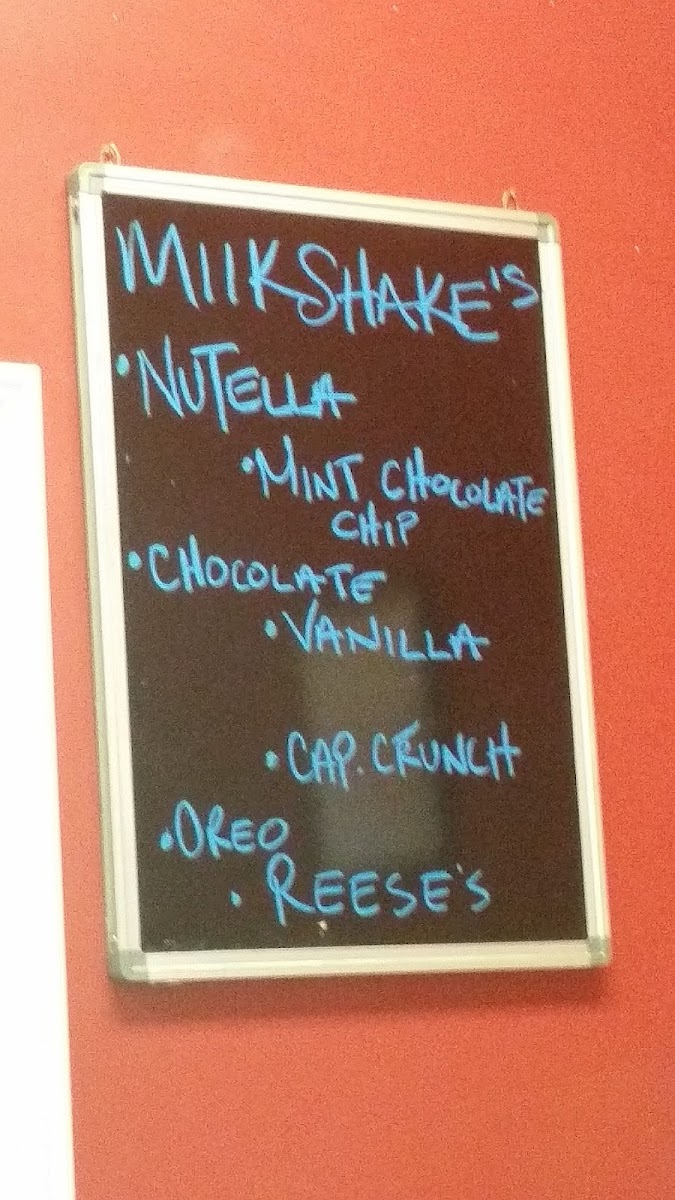 MILKSHAKE'S
•NUTELLA
•MINT CHOCOLATE
CHIP
•CHOCOLATE
•VANILLA
•CAP. CRUNCH
•OREO
•REESE'S